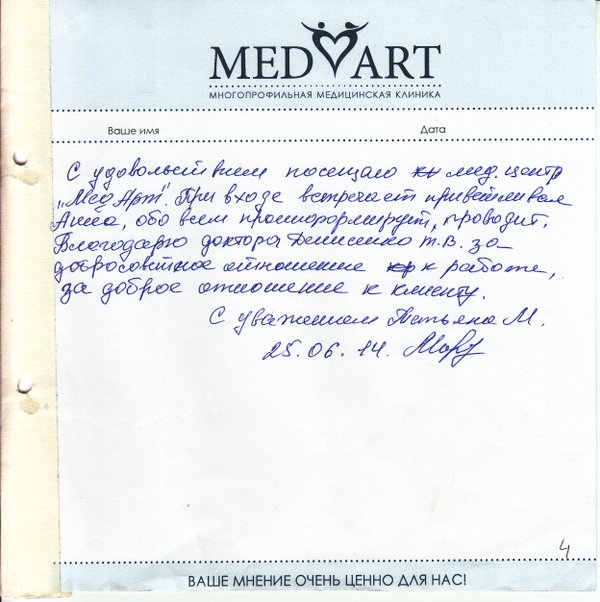 MED ART
МНОГОПРОФИЛЬНАЯ МЕДИЦИНСКАЯ КЛИНИКА
Ваше имя Дата
С удовольствием посещаю мед. центр
„МедАрт". При входе встречает приветливая
Анна, обо всем проинформирует, проводит.
Благодарю доктора Денисенко Т.В. за
добросовестное отношение к работе,
за доброе отношение к клиенту.
С уважением Татьяна М.
25.06.14.
4
ВАШЕ МНЕНИЕ ОЧЕНЬ ЦЕННО ДЛЯ НАС!